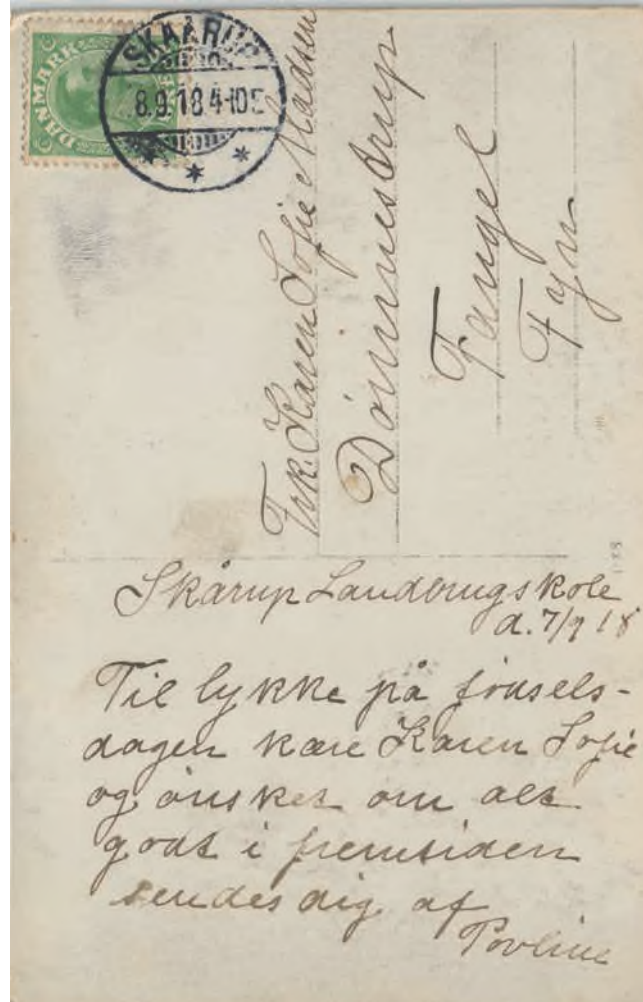 DANMARK
SKAARUP
8.9.18 4-10E
Frk. Karen Sofie Madsen
Dömmestrup
Fangel
Fyn
Skårup Landbrugskole
d. 7/9 18
Til lykke på fönsels-
dagen kære Karen Sofie
og önsket om alt
godt i fremtiden
sendes dig af
Povline